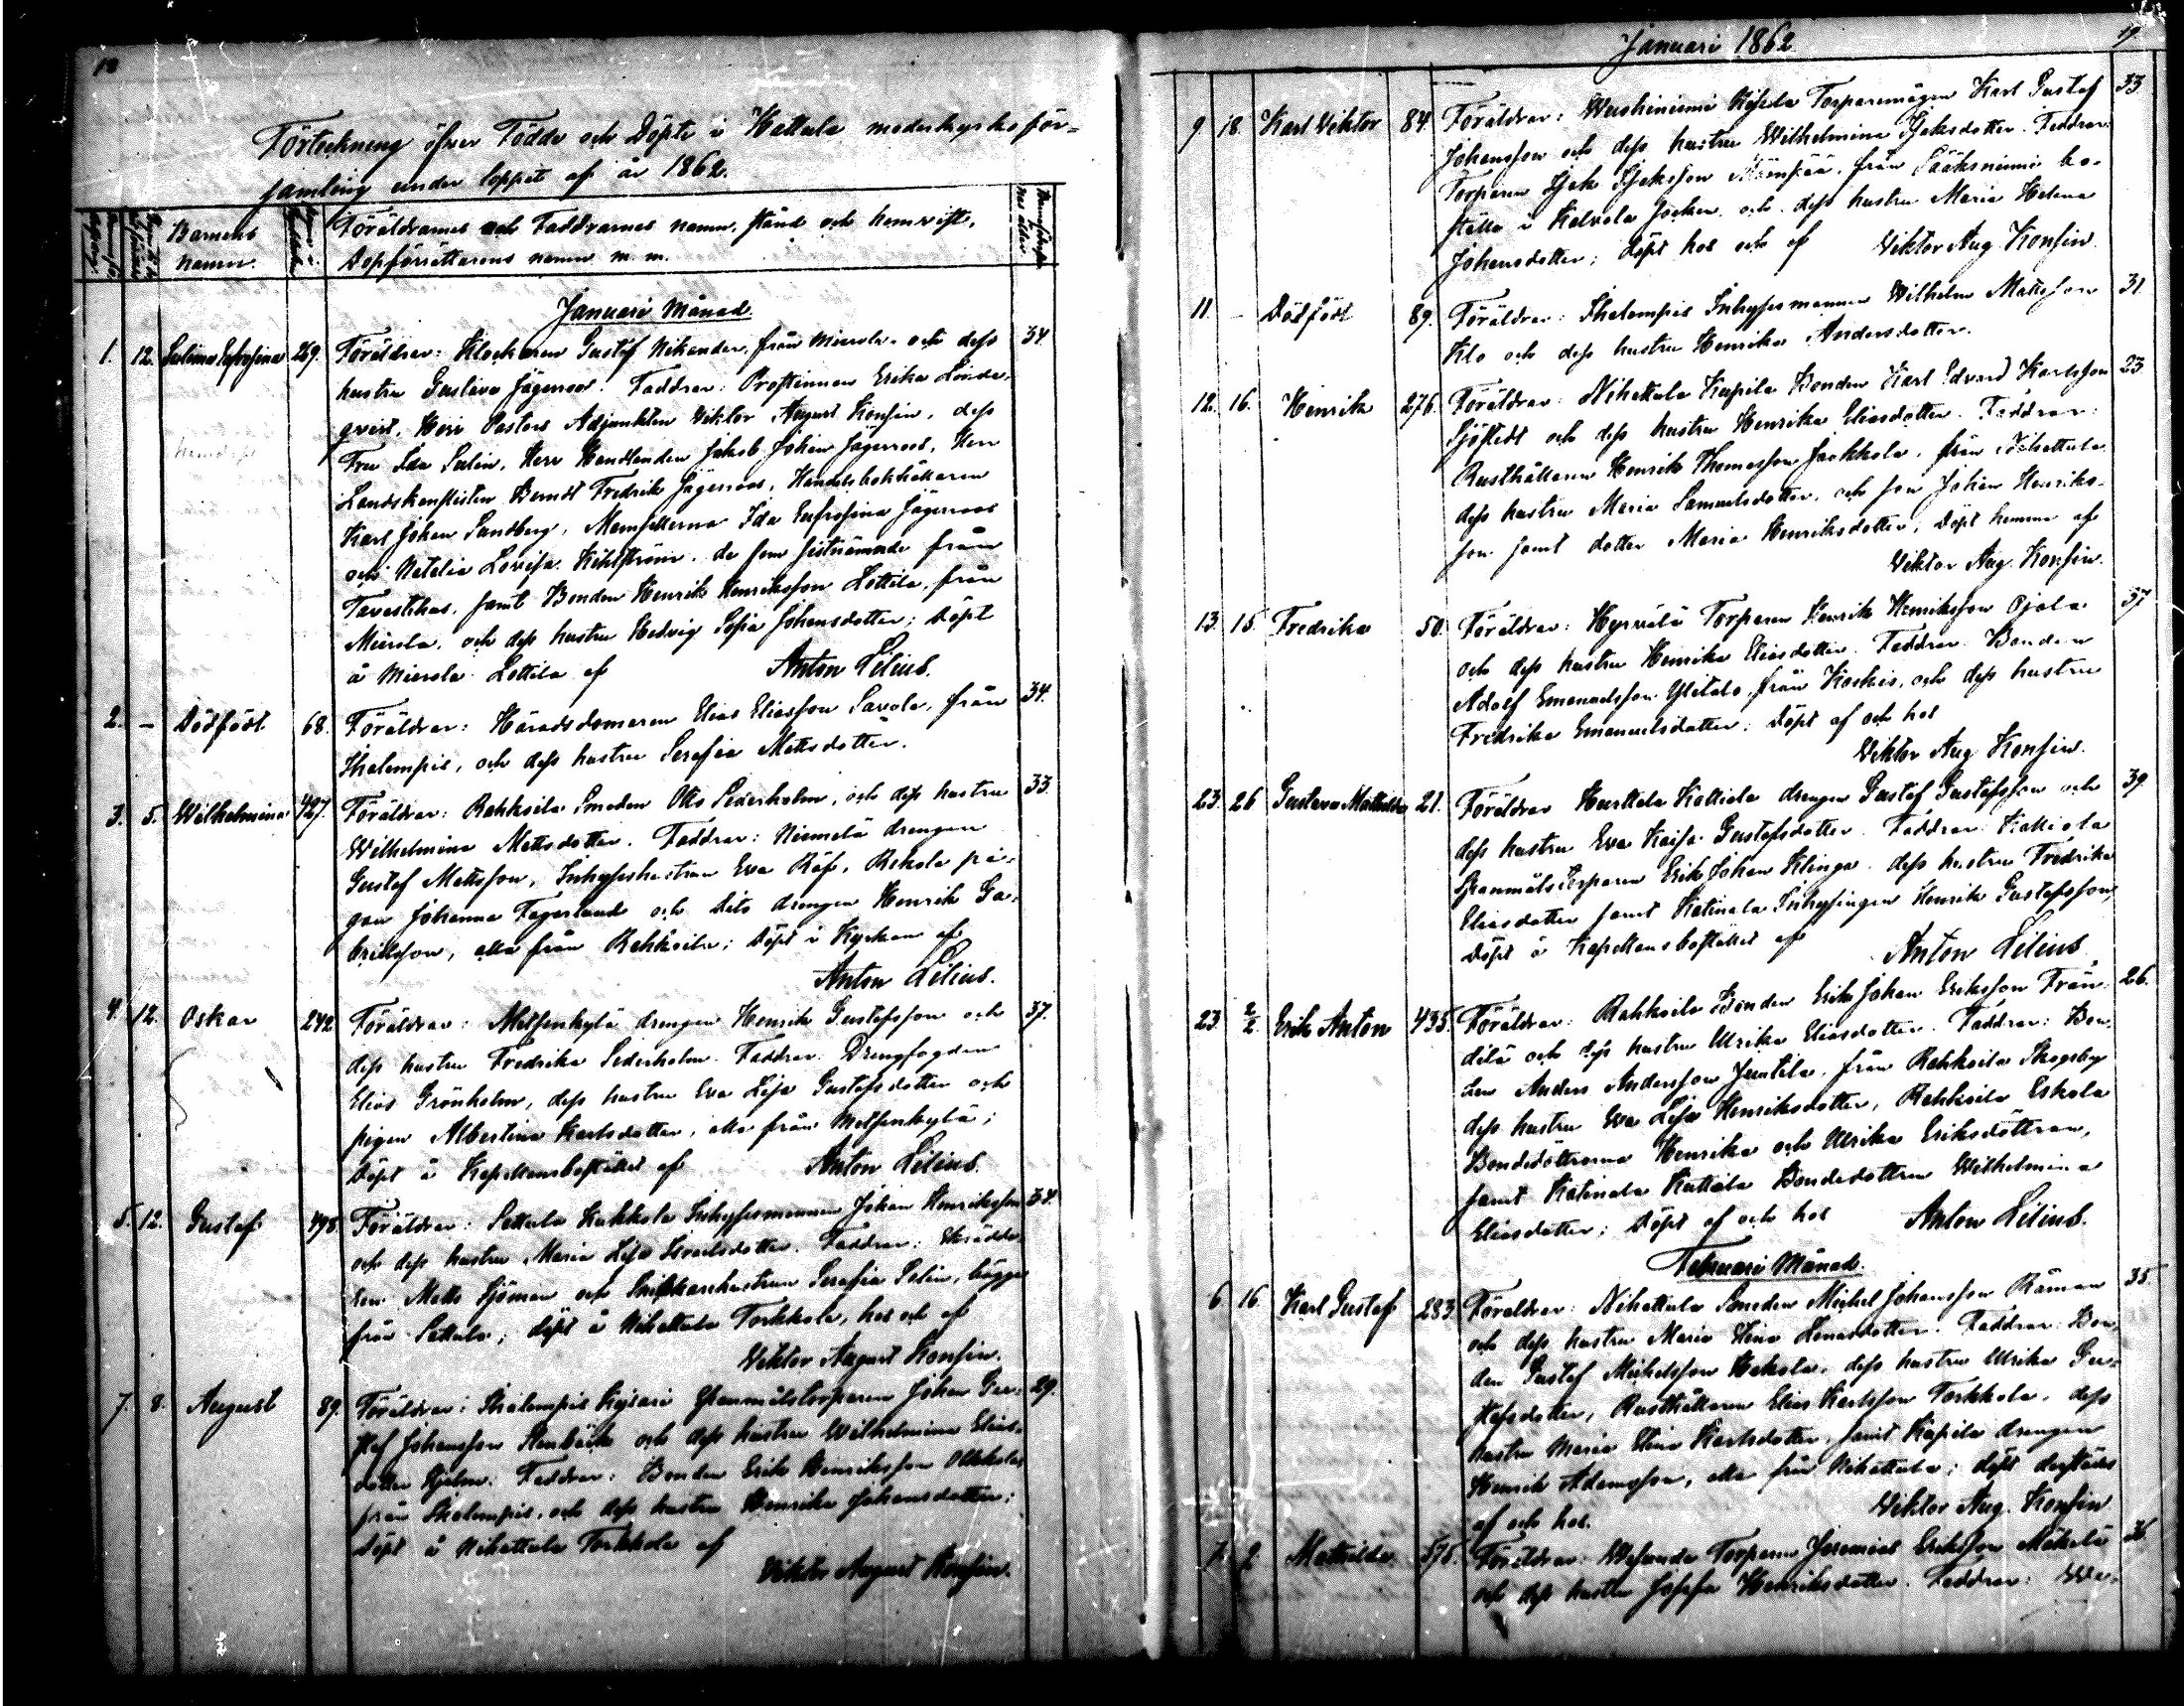 18
Förteckning öfver Födde och Döpte i Hattula moderkyrkoför-
samling under loppet af år 1862.
Barnens namn.
Föräldrarnes och Faddrarnes namn, stånd och hemvist,
Dopförrättarens namn m. m.
Januari Månad.
1. 12. Selima Eufrosina 269. Föräldrar: Klockaren Gustaf Nikander, från Mierola, och dess 34.
hustru Gustava Jägerroos. Faddrar: Prostinnan Erika Linde-
qvist, Herr Pastors Adjunkten Viktor August Konsin, dess
Fru Ida Selin, Herr Handlanden Jakob Johan Jägerroos, Herr
Landskanslisten Berndt Fredrik Jägerroos, Handelsbokhållaren
Karl Johan Sandberg, Mamsellerna Ida Eufrosina Jägerroos
och Natalia Lovisa Kihlström, de fem sistnämnde från
Tavastehus, samt Bonden Henrik Henriksson Lottila, från
Mierola, och dess hustru Hedvig Sofia Johansdotter; Döpt
å Mierola Lottila af Anton Lilius.
2. – Dödfödt. 68. Föräldrar: Häradsdomaren Elias Eliasson Savola, från 34.
Ihalempis, och dess hustru Serafia Mattsdotter.
3. 5. Wilhelmina 427. Föräldrar: Rahkoila Smeden Otto Sederholm, och dess hustru 33.
Wilhelmina Mattsdotter. Faddrar: Niemelä drengen
Gustaf Mattsson, Inhyseshustrun Eva Räf, Rekola pi-
gan Johanna Fagerlund och dito drengen Henrik Ga-
brielsson, alla från Rahkoila; Döpt i Kyrkan af
Anton Lilius.
4. 12. Oskar 242. Föräldrar: Metsenkylä drengen Henrik Gustafsson och 37.
dess hustru Fredrika Sederholm. Faddrar: Drengfogden
Elias Grönholm, dess hustru Eva Lisa Gustafsdotter och
pigan Albertina Karlsdotter, alla från Metsenkylä;
Döpt å Kapellansbostället af Anton Lilius.
5. 12. Gustaf 498. Föräldrar: Sattula Kukkola Inhysesmannen Johan Henriksson 34.
och dess hustru Maria Lisa Israelsdotter. Faddrar: Skrädda-
ren Matts Sjöman och hustrun Serafia Selin, bägge
från Sattula; döpt å Nihattula Torkkola, hos och af
Viktor August Konsin.
7. 8. August 89. Föräldrar: Ihalempis Keisari Spanmålstorparen Johan Gu- 29.
staf Johansson Stenbäck och dess hustru Wilhelmina Elias-
dotter Hjelm. Faddrar: Bonden Erik Henriksson Ollikkala
från Ihalempis, och dess hustru Henrika Johansdotter;
Döpt å Nihattula Torkkola af
Viktor August Konsin.
Januari 1862 19
9. 18. Karl Viktor 84. Föräldrar: Torparemågen Karl Gustaf 33
Johansson och dess hustru Wilhelmina Isaksdotter. Faddrar:
Torparen Isak Isaksson från Sääksniemi bo-
ställe i Kalvola socken och dess hustru Maria Helena
Johansdotter; döpt hos och af Viktor Aug. Konsin.
11. – Dödfödt 89. Föräldrar: Ihalempis Inhysesmannen Wilhelm Mattsson 31.
Klo och dess hustru Henrika Andersdotter.
12. 16. Henrik 276. Föräldrar: Nihattula Kapila Bonden Karl Edvard Karlsson 23
Sjöstedt och dess hustru Henrika Eliasdotter. Faddrar:
Rusthållaren Henrik Thomasson Jaakkola, från Nihattula
dess hustru Maria Samuelsdotter, och son Johan Henriks-
son samt dotter Maria Henriksdotter; Döpt hemma af
Viktor Aug. Konsin.
13. 15. Fredrika 50. Föräldrar: Hyrvälä Torparen Henrik Henriksson Ojala 37
och dess hustru Henrika Eliasdotter. Faddrar: Bonden
Adolf Emanuelsson Ylitalo, från Koskis, och dess hustru
Fredrika Emanuelsdotter. Döpt af och hos
Viktor Aug. Konsin.
23. 26 Gustava Mathilda 21. Föräldrar Hurttala Kattiala drengen Gustaf Gustafsson och 39.
dess hustru Eva Kaisa Gustafsdotter. Faddrar: Kattiala
Spanmålstorparen Erik Johan Klinga, dess hustru Fredrika
Eliasdotter samt Katinala Inhysingen Henrik Gustafsson,
Döpt å Kapellansbostället af Anton Lilius.
23. 2/2 Erik Anton 435. Föräldrar: Rahkoila Bonden Erik Johan Eriksson Frän- 26.
dilä och dess hustru Ulrika Eliasdotter. Faddrar: Bon-
den Anders Andersson Juntila, från Rahkoila Skogsby
dess hustru Eva Lisa Henriksdotter, Rahkoila Eskola
Bondedöttrarna Henrika och Ulrika Eriksdöttrar,
samt Katinala Kattiala Bondedottren Wilhelmina
Eliasdotter; Döpt af och hos Anton Lilius.
Februari Månad.
6. 16. Karl Gustaf 283. Föräldrar: Nihattula Smeden Michel Johansson Råman 35
och dess hustru Maria Stina Henrasdotter. Faddrar: Bon-
den Gustaf Michelsson Hakola, dess hustru Ulrika Gu-
stafsdotter, Rusthållaren Elias Karlsson Torkkola, dess
hustru Maria Stina Karlsdotter, samt Kapila drengen
Henrik Adamsson, alla från Nihattula; döpt derstädes
af och hos. Viktor Aug. Konsin
7. 9. Mathilda 575. Föräldrar: Wesunda Torparen Jeremias Eriksson Mäkelä 36
och dess hustru Josefa Henriksdotter. Faddrar: We-